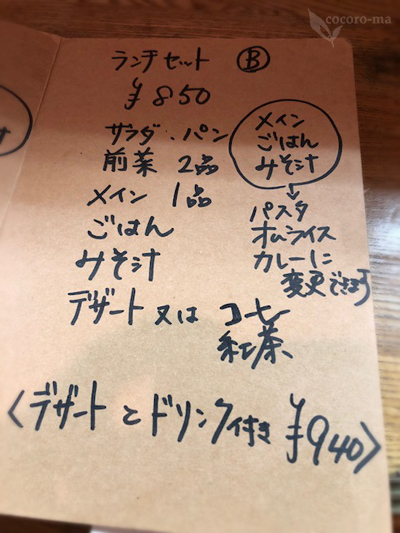 cocoro-ma
ランチセット Ⓑ
¥850
サラダ、パン
前菜 2品
メイン 1品
ごはん
みそ汁
メイン
ごはん
みそ汁
↓
パスタ
オムライス
カレーに
変更できます
デザート又は コーヒー
紅茶
〈デザートとドリンク付き ¥940〉